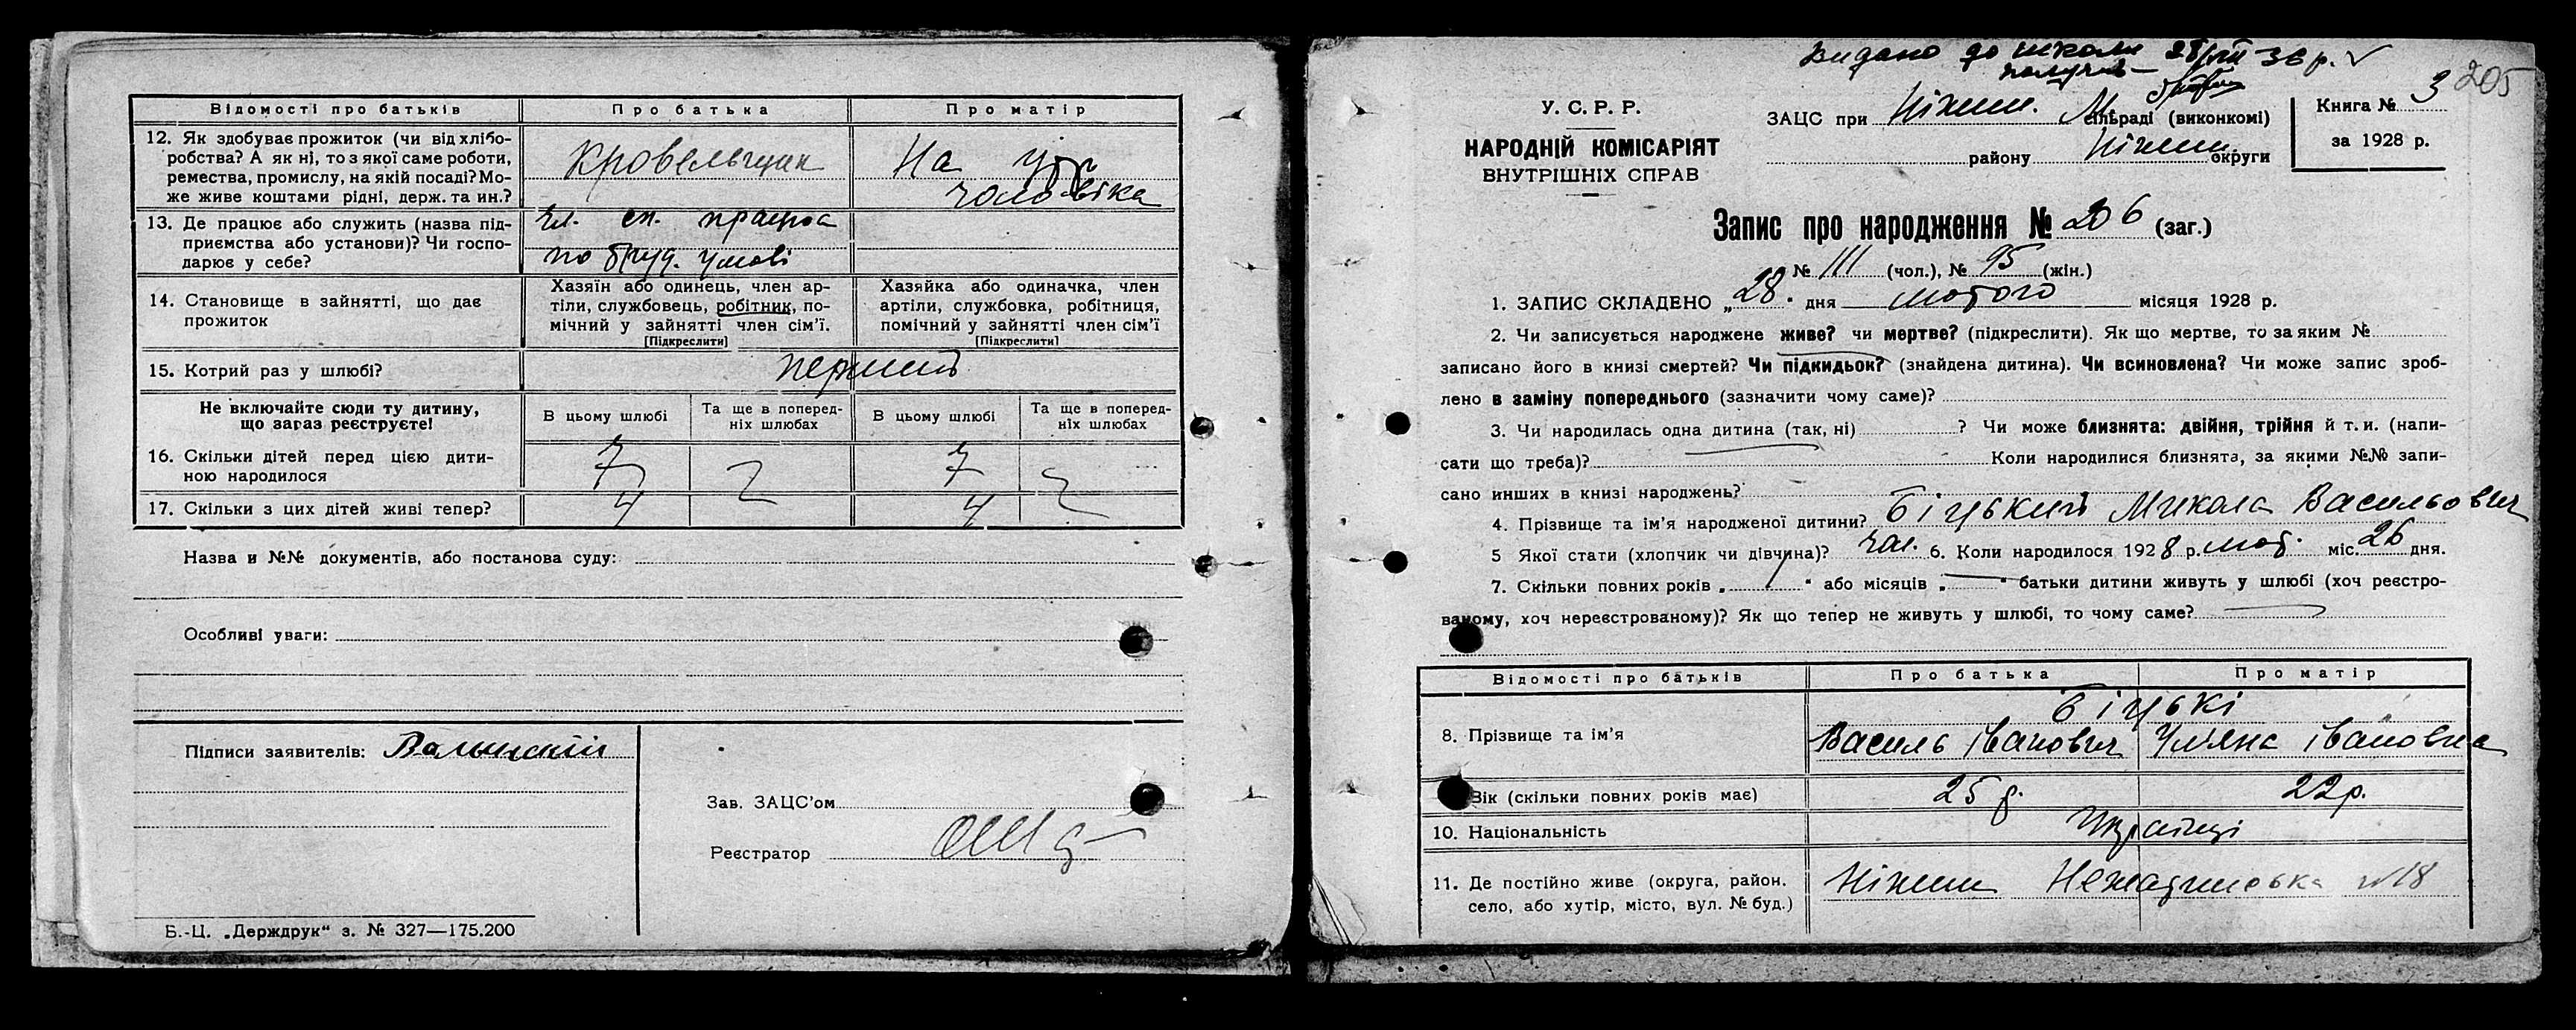 Відомості про батьків Про батька Про матір
12. Як здобуває прожиток (чи від хлібо-
робства? А як ні, то з якої саме роботи,
ремества, промислу, на якій посаді? Мо-
же живе коштами рідні, держ. та ин.?
Кровельщик
На утр
чоловіка
13. Де працює або служить (назва під-
приємства або установи)? Чи госпо-
дарює у себе?
чл. сп. працює
по труд. умові
14. Становище в зайнятті, що дає
прожиток
Хазяїн або одинець, член ар-
тіли, службовець, робітник, по-
мічний у зайнятті член сім’ї.
[Підкреслити]
Хазяйка або одиначка, член
артіли, службовка, робітниця,
помічний у зайнятті член сім’ї
[Підкреслити]
15. Котрий раз у шлюбі? перший
Не включайте сюди ту дитину,
що зараз реєструєте!
В цьому шлюбі
Та ще в поперед-
ніх шлюбах
В цьому шлюбі
Та ще в поперед-
ніх шлюбах
16. Скільки дітей перед цією дити-
ною народилося
7 7
17. Скільки з цих дітей живі тепер? 4 4
Назва и №№ документів, або постанова суду:
Особливі уваги:
Підписи заявителів:
Зав. ЗАЦС’ом
Реєстратор
Б.-Ц. „Держдрук“ з. № 327—175.200
Видано до школи 28/VIII 36 р.
получив
205
У. С. Р. Р.
НАРОДНІЙ КОМІСАРІЯТ
ВНУТРІШНІХ СПРАВ
ЗАЦС при Ніжин. М сільраді (виконкомі)
району Ніжин. округи
Книга № 3
за 1928 р.
Запис про народження № 206 (заг.)
№ 111 (чол.), № 95 (жін.)
1. ЗАПИС СКЛАДЕНО „28“ дня лютого місяця 1928 р.
2. Чи записується народжене живе? чи мертве? (підкреслити). Як що мертве, то за яким №
записано його в книзі смертей? Чи підкидьок? (знайдена дитина). Чи всиновлена? Чи може запис зроб-
лено в заміну попереднього (зазначити чому саме)?
3. Чи народилась одна дитина (так, ні) ? Чи може близнята: двійня, трійня й т. и. (напи-
сати що треба)? Коли народилися близнята, за якими №№ запи-
сано инших в книзі народжень?
4. Прізвище та ім’я народженої дитини? Біцький Микола Васильович
5 Якої стати (хлопчик чи дівчина)? чол. 6. Коли народилося 1928 р. лют. міс. 26 дня.
7. Скільки повних років „ “ або місяців „ “ батьки дитини живуть у шлюбі (хоч реєстро-
ваному, хоч нереєстрованому)? Як що тепер не живуть у шлюбі, то чому саме?
Відомості про батьків Про батька Про матір
Біцькі
8. Прізвище та ім’я Василь Іванович Уляна Івановна
Вік (скільки повних років має) 25 р. 22 р.
10. Національність Українці
11. Де постійно живе (округа, район.
село, або хутір, місто, вул. № буд.)
Ніжин №18